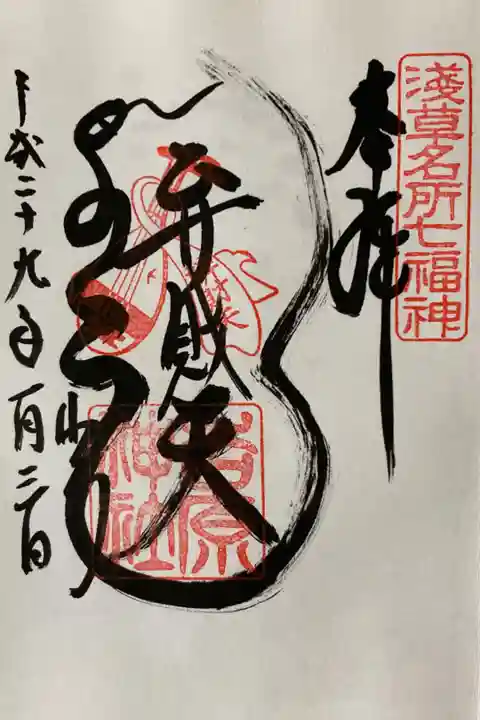 淺草名所七福神
奉拝
弁財天
吉原神社
平成二十九年一月二日